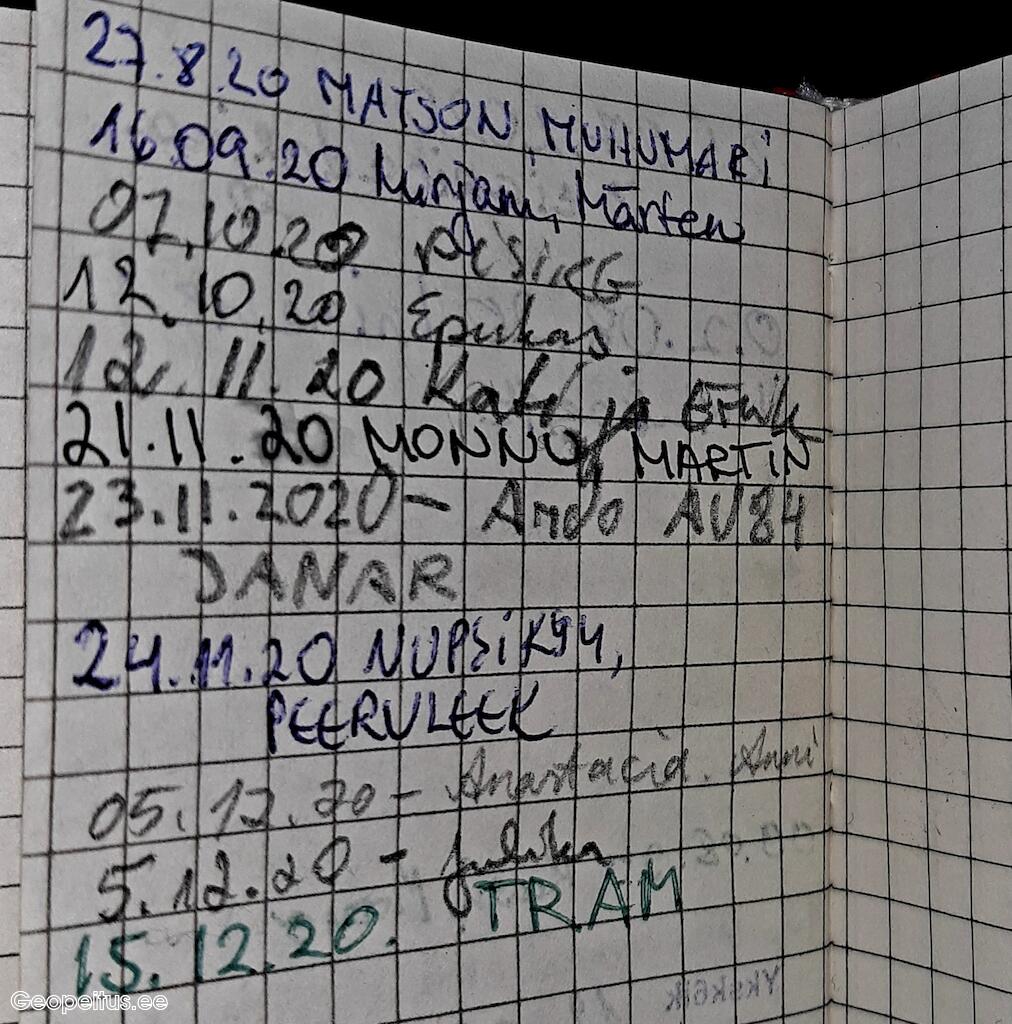 27.8.20 MATSON, MUHUMARI
16.09.20 Mirjam, Märten
07.10.20
12.10.20 Epukas
12.11.20 Kati ja Erik
21.11.20 MONNU, MARTIN
23.11.2020 - Ardo AV84
DANAR
24.11.20 NUPSIK94,
PEERULEEK
05.12.20 - Anastacia. Anni
5.12.20 - Julika
15.12.20. TRAM
Geopeitus.ee